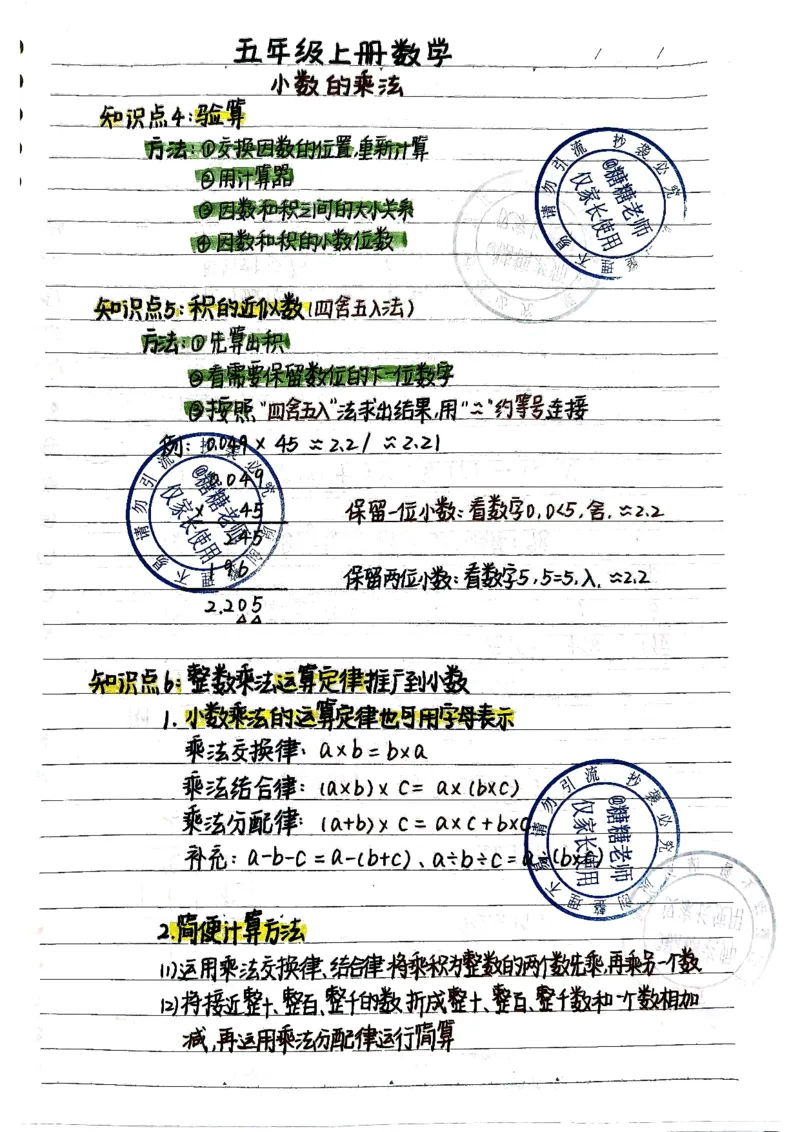 五年级上册数学
小数的乘法
知识点4:验算
方法:①交换因数的位置,重新计算
②用计算器
③因数和积之间的大小关系
④因数和积的小数位数
知识点5:积的近似数(四舍五入法)
方法:①先算出积
②看需要保留数位的下一位数字
③按照“四舍五入”法求出结果,用“≈”约等号连接
例:0.049×45≈2.2/≈2.21
0.049
× 45
245
196
2.205
保留一位小数:看数字0,0<5,舍.≈2.2
保留两位小数:看数字5,5=5,入.≈2.2
知识点6:整数乘法运算定律推广到小数
1.小数乘法的运算定律也可用字母表示
乘法交换律:a×b=b×a
乘法结合律:(a×b)×c=a×(b×c)
乘法分配律:(a+b)×c=a×c+b×c
补充:a-b-c=a-(b+c)、a÷b÷c=a÷(b×c)
2.简便计算方法
(1)运用乘法交换律、结合律将乘积为整数的两个数先乘,再乘另一个数
(2)将接近整十、整百、整千的数,拆成整十、整百、整千数和一个数相加
减,再运用乘法分配律运行简算
@糖糖老师
仅家长使用
整理不易请勿引流抄袭必究
@糖糖老师
仅家长使用
@糖糖老师
仅家长使用